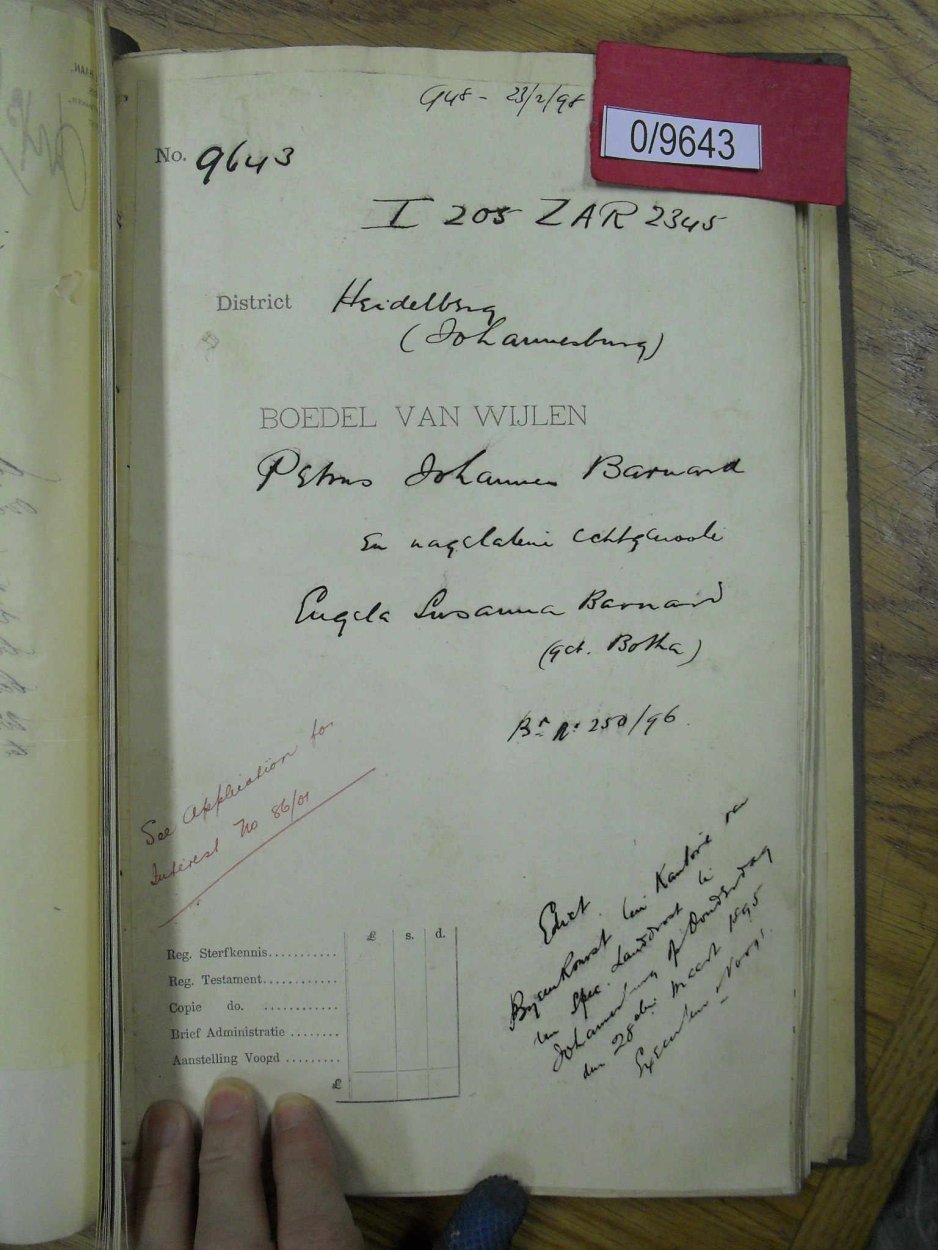 948 - 23/2/98
0/9643
No. 9643
I 205 ZAR 2345
District Heidelberg
(Johannesburg)
BOEDEL VAN WIJLEN
Petrus Johannes Barnard
En nagelatene echtgenoote
Engela Susanna Barnard
(geb. Botha)
Br. No 250/96.
See Application for
Interest No 86/01
Edict
Byeenkomst ten Kantore van
den Spec. Landdrost te
Johannesburg op Donderdag
den 28 sten Maart 1895
Executeur Voogd
£ s. d.
Reg. Sterfkennis...........
Reg. Testament............
Copie do. ............
Brief Administratie ........
Aanstelling Voogd .........
£